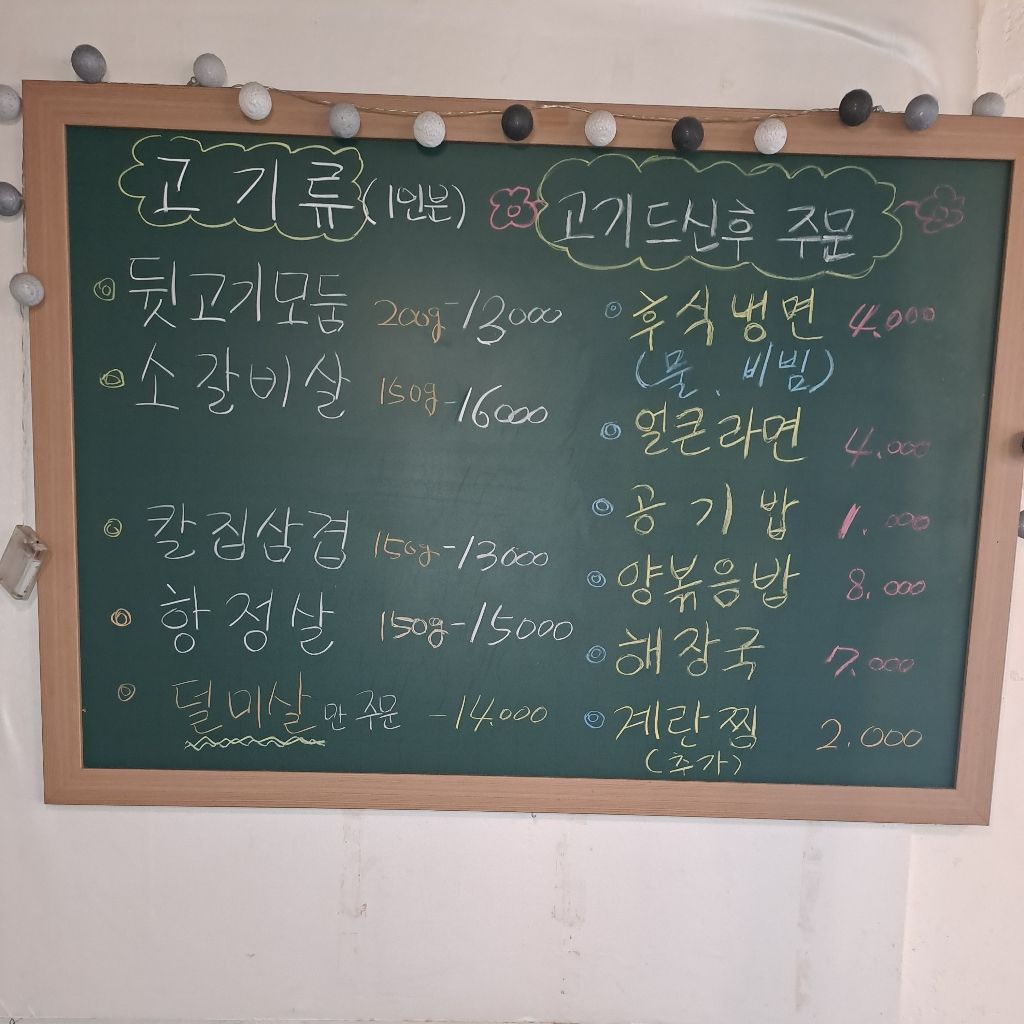 고기류 (1인분)
뒷고기모듬 200g-13000
소갈비살 150g-16000
칼집삼겹 150g-13000
항정살 150g-15000
덜미살만 주문 -14.000
고기드신후 주문
후식냉면 4.000
(물, 비빔)
얼큰라면 4.000
공기밥 1.000
양볶음밥 8.000
해장국 7.000
계란찜 2.000
(추가)